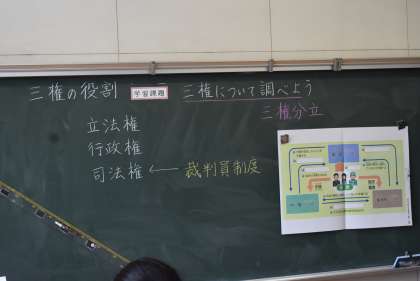 三権の役割 学習課題 三権について調べよう
三権分立
立法権
行政権
司法権 ← 裁判員制度